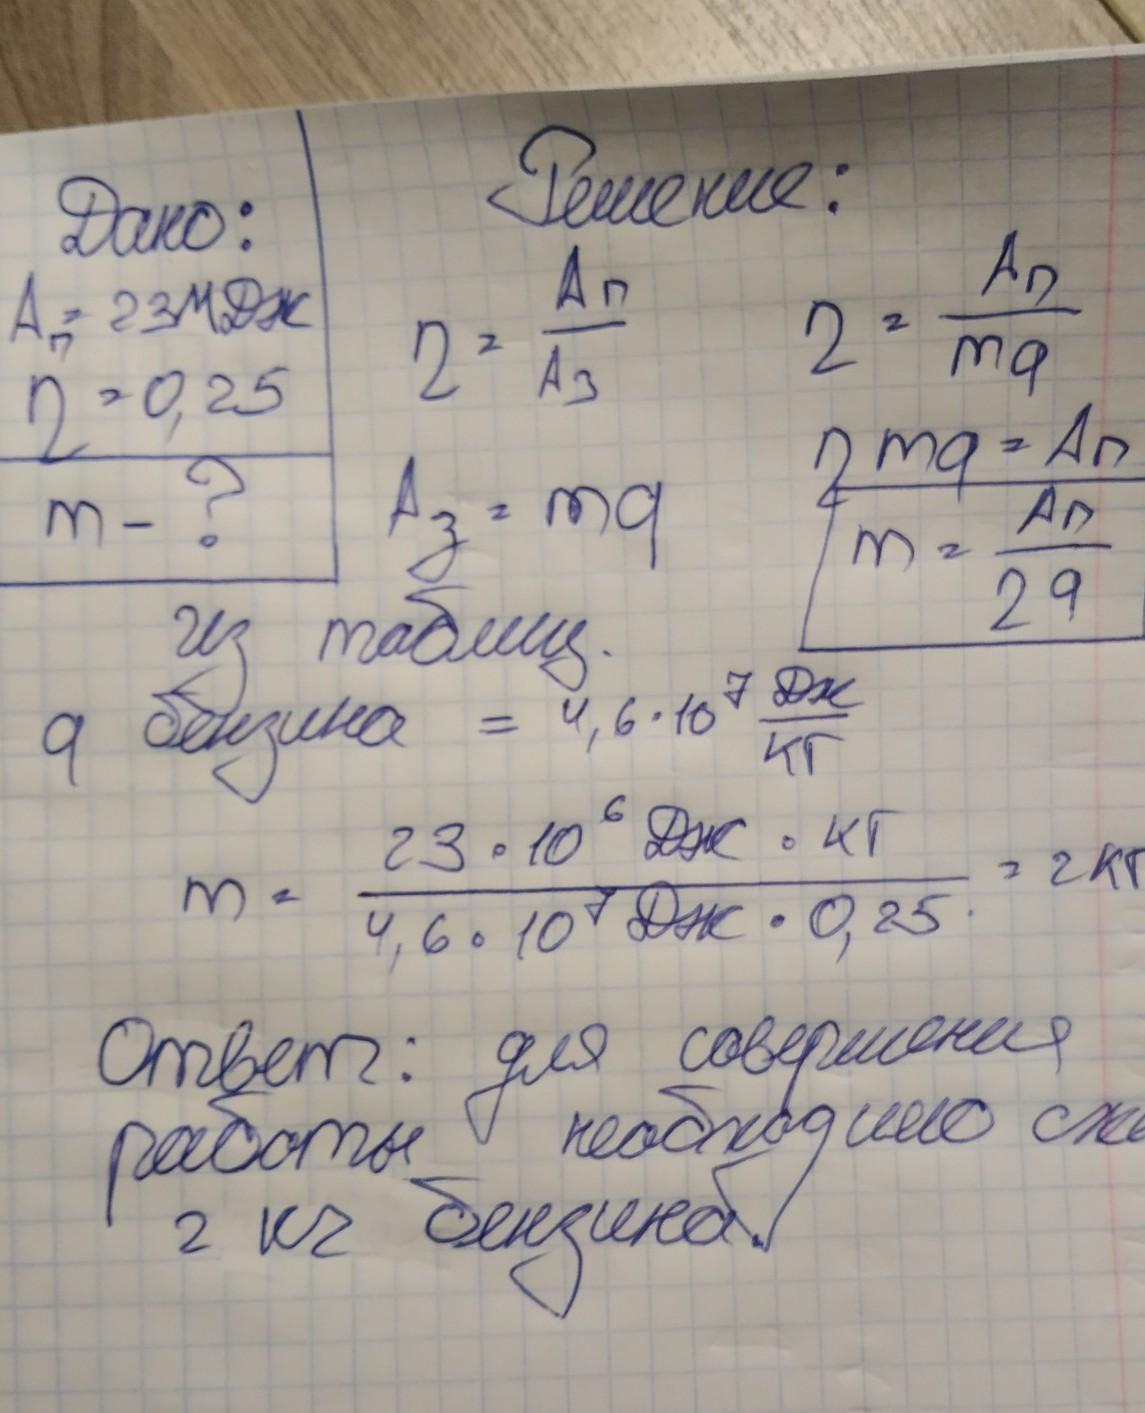 Дано:
Aп = 23МДж
η = 0,25
m - ?
Решение:
η = Aп / Aз
Aз = mq
η = Aп / mq
ηmq = Aп
m = Aп / ηq
из таблиц.
q бензина = 4,6·10⁷ Дж/кг
m = 23·10⁶ Дж · кг / 4,6·10⁷ Дж · 0,25 = 2кг
Ответ: для совершения
работы необходимо
2 кг бензина.